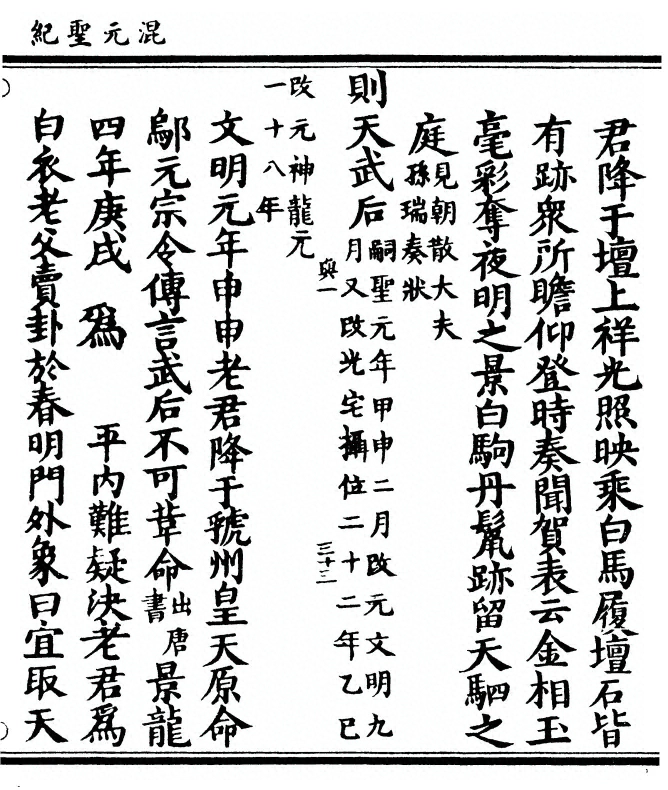 混元聖紀
君降于壇上祥光照映乘白馬履壇石皆
有跡衆所瞻仰登時奏聞賀表云金相玉
毫彩奪夜明之景白駒丹鬣跡留天駟之
庭
見朝散大夫
孫瑞奏狀
則天武后
嗣聖元年甲申二月改元文明九
月又改光宅攝位二十二年乙巳
與一
三十三
改元神龍元
一十八年
文明元年申申老君降于虢州皇天原命
鄔元宗令傳言武后不可革命出唐書景龍
四年庚戌 爲 平内難疑決老君爲
白衣老父賣卦於春明門外象曰宜取天